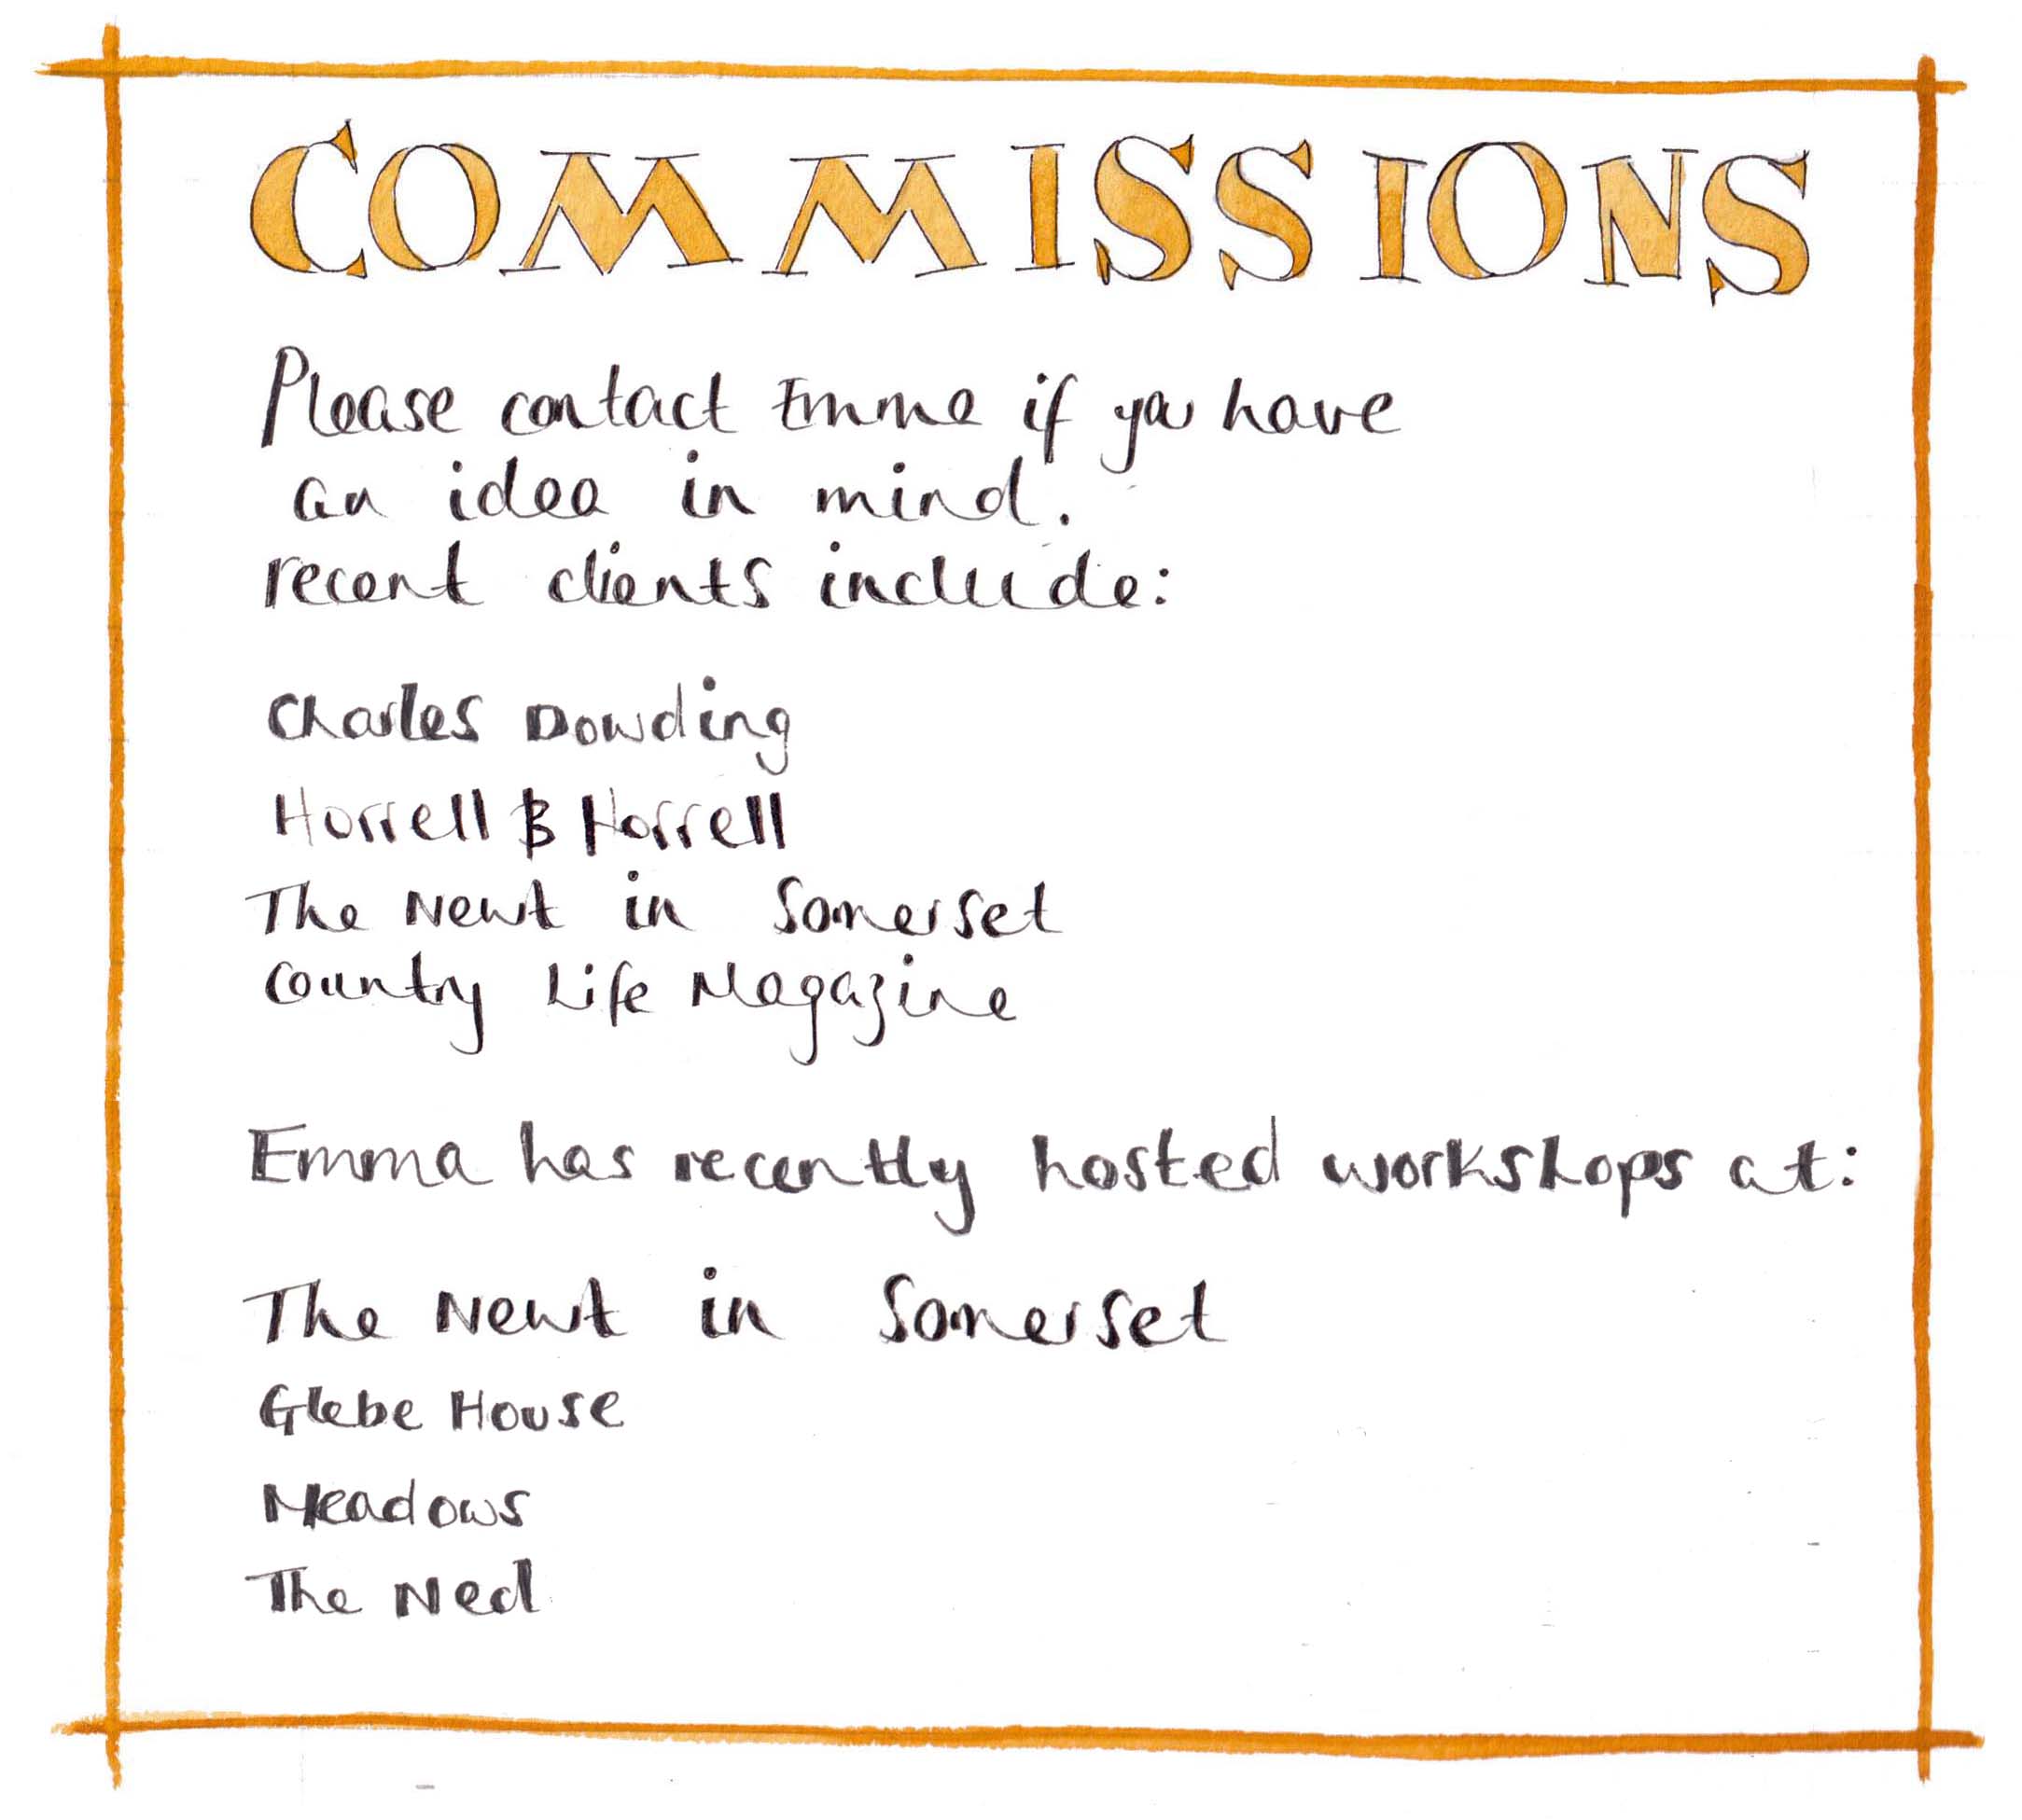 COMMISSIONS
Please contact Emma if you have
an idea in mind.
recent clients include:
Charles Dowding
Horrell & Horrell
The Newt in Somerset
Country Life Magazine
Emma has recently hosted workshops at:
The Newt in Somerset
Glebe House
Meadows
The Ned